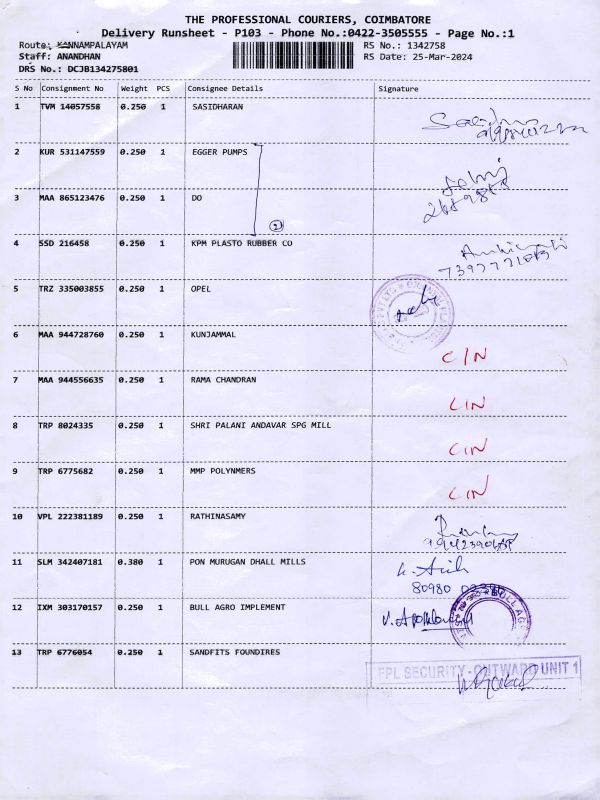 THE PROFESSIONAL COURIERS, COIMBATORE
Delivery Runsheet - P103 - Phone No.:0422-3505555 - Page No.:1
Route: KANNAMPALAYAM RS No.: 1342758
Staff: ANANDHAN RS Date: 25-Mar-2024
DRS No.: DCJB134275801
S No Consignment No Weight PCS Consignee Details Signature
1 TVM 14057558 0.250 1 SASIDHARAN
2 KUR 531147559 0.250 1 EGGER PUMPS
3 MAA 865123476 0.250 1 DO
2
4 SSD 216458 0.250 1 KPM PLASTO RUBBER CO
5 TRZ 335003855 0.250 1 OPEL
6 MAA 944728760 0.250 1 KUNJAMMAL
C/N
7 MAA 944556635 0.250 1 RAMA CHANDRAN
C/N
8 TRP 8024335 0.250 1 SHRI PALANI ANDAVAR SPG MILL
C/N
9 TRP 6775682 0.250 1 MMP POLYNMERS
C/N
10 VPL 222381189 0.250 1 RATHINASAMY
11 SLM 342407181 0.380 1 PON MURUGAN DHALL MILLS
80980
12 IXM 303170157 0.250 1 BULL AGRO IMPLEMENT
13 TRP 6776054 0.250 1 SANDFITS FOUNDIRES
FPL SECURITY-OUTWARD UNIT 1